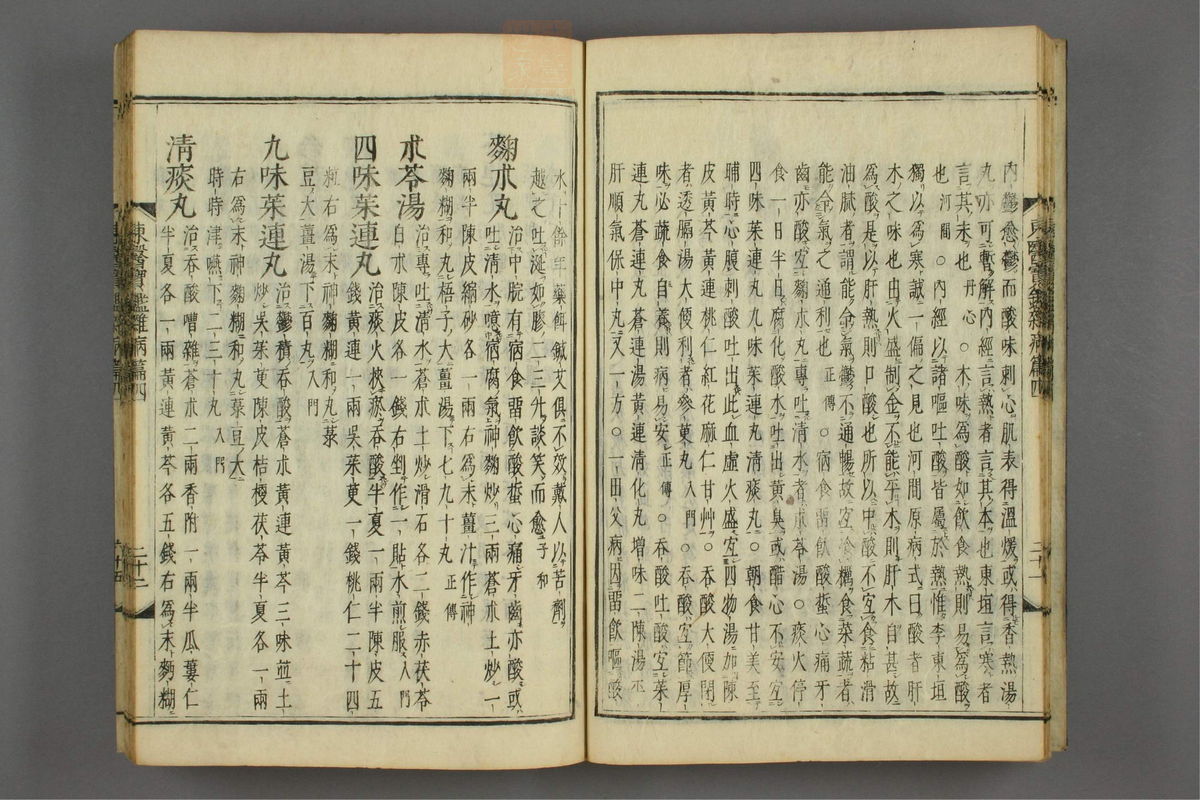 內鬱愈鬱而酸味刺心肌表得溫煖或得香熱湯
丸亦可暫解內經言熱者言其本也東垣言寒者
言其末也丹心○木味爲酸如飮食熱則易爲酸
也河間○內經以諸嘔吐酸皆屬於熱惟李東垣
獨以爲寒誠一偏之見也河間原病式曰酸者肝
木之味也由火盛制金不能平木則肝木自甚故
爲酸是以肝熱則口酸也所以中酸不宜食粘滑
油膩者謂能令氣鬱不通暢故宜飡糲食菜蔬者
能令氣之通利也正傳○宿食留飮酸蜇心痛牙
齒亦酸宜麴朮丸專吐淸水者朮苓湯○痰火停
食一日半日腐化酸水吐出黃臭或醋心不安宜
四味茱連丸九味茱連丸淸痰丸○朝食甘美至
晡時心腹刺酸吐出此血虛火盛宜四物湯加陳
皮黃芩黃連桃仁紅花麻仁甘艸○吞酸大便閉
者透膈湯大便利者參萸丸入門○吞酸宜節厚
味必蔬食自養則病易安正傳○吞酸吐酸宜茱
連丸蒼連丸蒼連湯黃連淸化丸增味二陳湯丕
肝順氣保中丸又一方○一田父病因留飮嘔酸
東醫寶鑑雜病篇四
二十一
水十餘年藥餌鍼艾俱不效戴人以苦劑
越之吐涎如膠二三升談笑而愈子和
麴朮丸治中脘有宿食留飮酸蜇心痛牙齒亦酸或
吐淸水噫宿腐氣神麴炒三兩蒼朮土炒一
兩半陳皮縮砂各一兩右爲末薑汁作神
麴糊和丸梧子大薑湯下七九十丸正傳
朮苓湯治專吐淸水蒼朮土炒滑石各二錢赤茯苓
白朮陳皮各一錢右剉作一貼水煎服入門
四味茱連丸治痰火挾瘀吞酸半夏一兩半陳皮五
錢黃連一兩吳茱萸一錢桃仁二十四
粒右爲末神麴糊和丸菉
豆大薑湯下百丸入門
九味茱連丸治鬱積吞酸蒼朮黃連黃芩三味並土
炒吳茱萸陳皮桔梗茯苓半夏各一兩
右爲末神麴糊和丸菉豆大
時時津嚥下二三十丸入門
淸痰丸治吞酸嘈雜蒼朮二兩香附一兩半瓜蔞仁
半夏各一兩黃連黃芩各五錢右爲末麪糊
東醫寶鑑雜病篇四
二十二